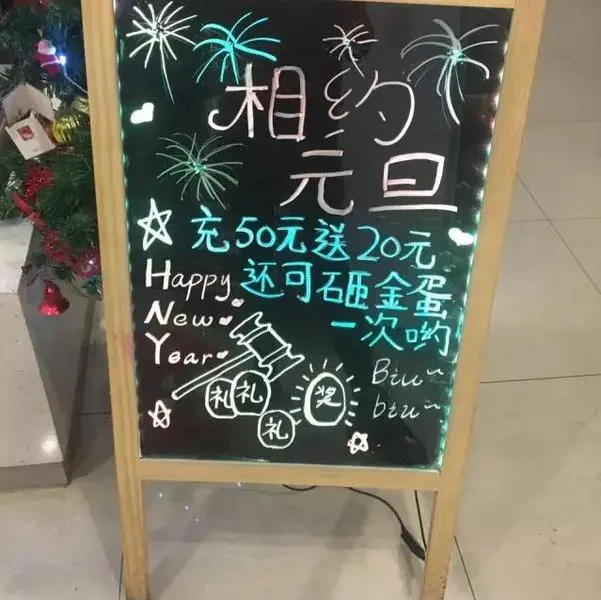 相约
元旦
充50元送20元
还可砸金蛋
一次哟
Happy
New
Year
礼
礼
礼
奖
Biu~
biu~